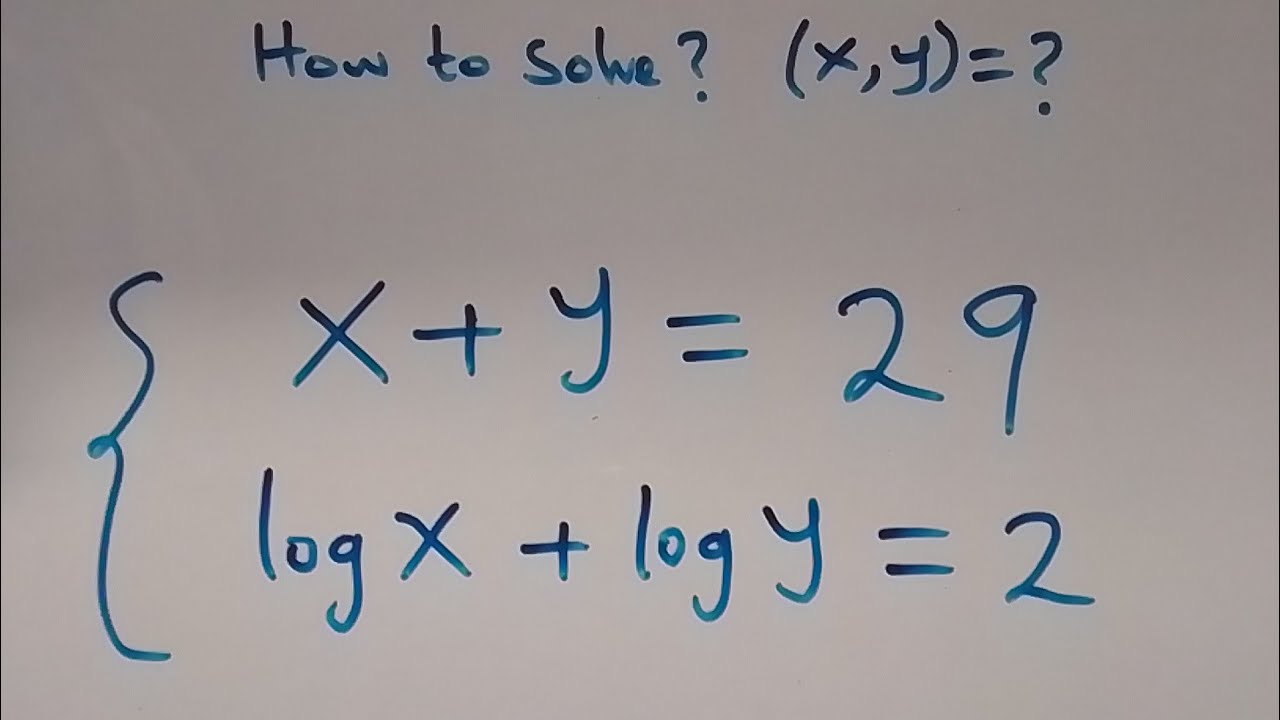 How to solve? (x,y)=?
x+y=29
log x + log y = 2